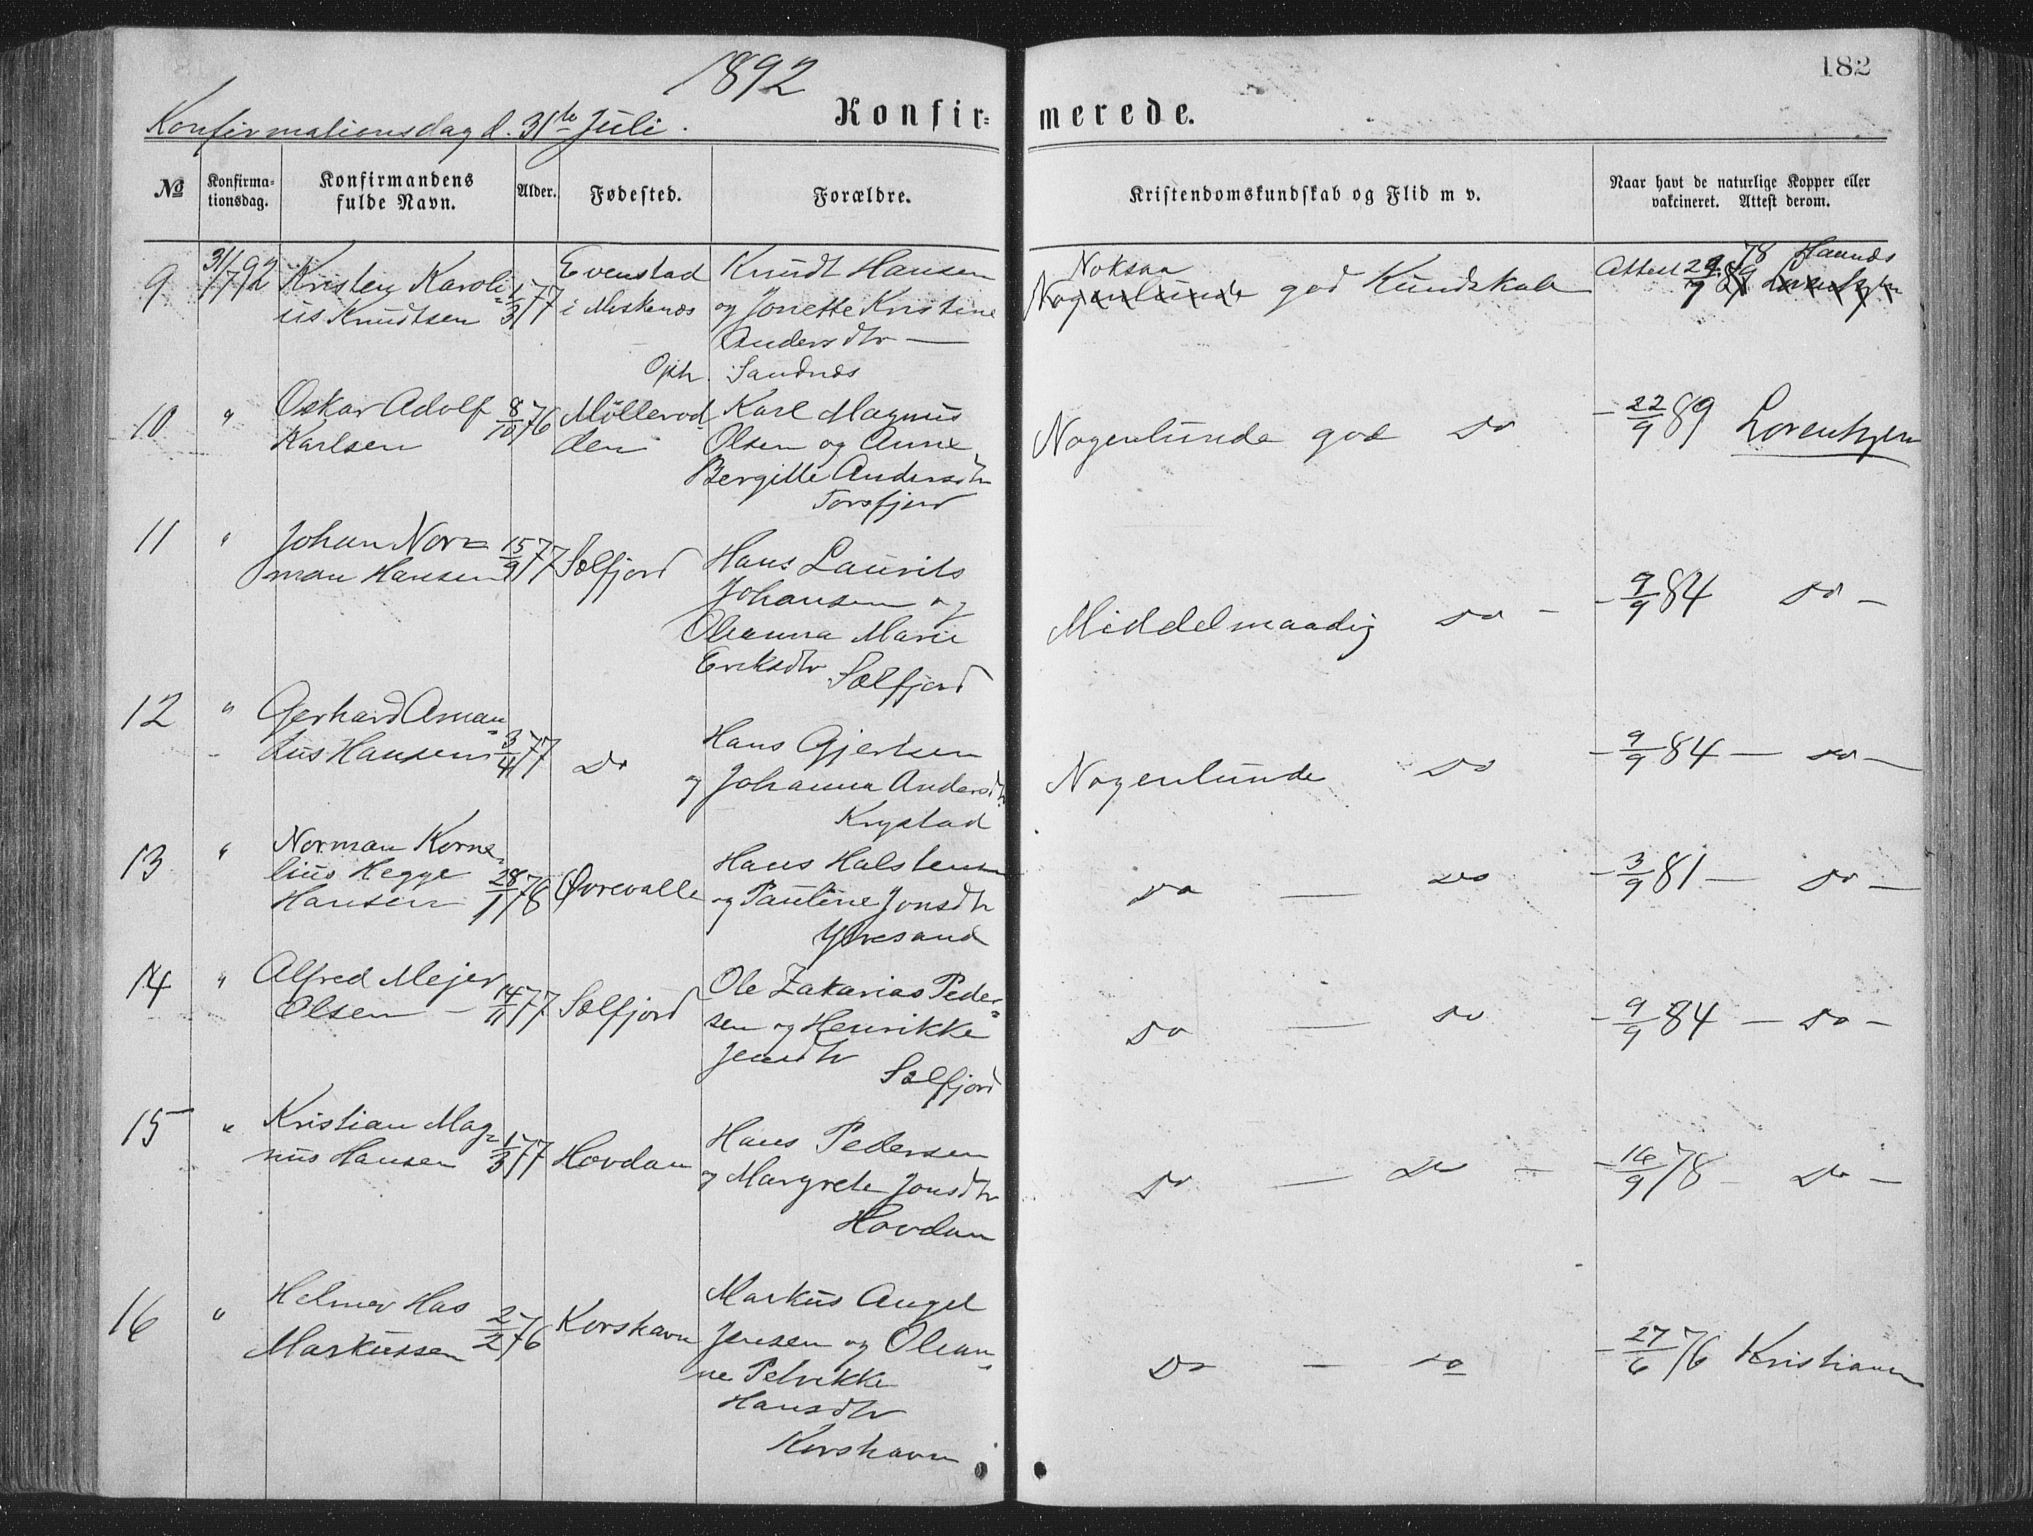 1892
182
Konfir=
merede.
Konfirmationsdag d. 31te Juli.
No
Konfirma=
tionsdag.
Konfirmandens
fulde Navn.
Alder.
Fødested.
Forældre.
Kristendomskundskab og Flid m v.
Naar havt de naturlige Kopper eller
vakcineret. Attest derom.
9
31/7 92
Kristen Karoli=
us Knudtsen
1/3 77
Evenstad
i Moskenæs
Oph.
Knudt Hansen
og Jonette Kristine
Andersdtr —
Sandnæs
Noksaa
Nogenlunde god Kundskab
Attest
78
10
"
Oskar Adolf
Karlsen
8/10 76
Møllerod
den
Karl Magnus
Olsen og Anne
Bergitte Andersdtr
Torsfjord
Nogenlunde god do
- 22/9 89 Lorentzen
11
"
Johan Nor=
man Hansen
15/9 77
Sælfjord
Hans Laurits
Johansen og
Oleanna Marie
Eriksdtr Sælfjord
Middelmaadig do -
- 9/9 84 do -
12
"
Gerhard Aman=
dus Hansen
3/4 77
do
Hans Gjertsen
og Johanna Andersdtr
Krystad
Nogenlunde do
- 9/9 84 — do —
13
"
Norman Korne=
lius Hegge
Hansen
28/1 76
Øvrevalle
Hans Halstensen
og Pauline Jonsdtr
Ytresand
do — do
- 3/9 81 — do —
14
"
Alfred Mejer
Olsen —
14/11 77
Sælfjord
Ole Zakarias Peder=
sen og Henrikke
Jensdtr
Sælfjord
do — do
- 9/9 84 — do -
15
"
Kristian Mag=
nus Hansen
1/3 77
Hovdan
Hans Pedersen
og Margrete Jonsdtr
Hovdan
do — do -
- 16/9 78 - do -
16
"
Helmer Has
Markussen
2/2 76
Korshavn
Markus Angel
Jensen og Olean=
ne Petrikke
Hansdtr
Korshavn
do - do
- 27/6 76 Kristiansen